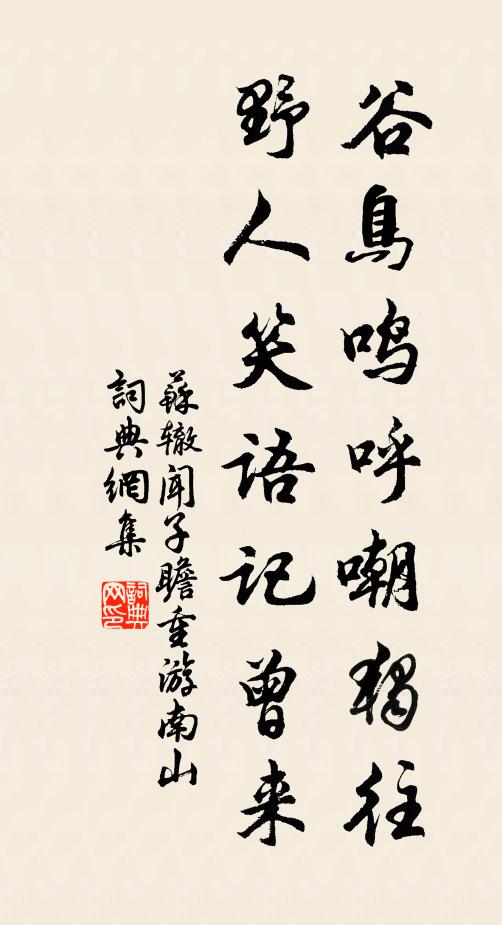 谷鳥鸣呼嘲獨往
野人笑语记曾来
蘇辙闻子瞻重游南山
詞典網集
詞典网印